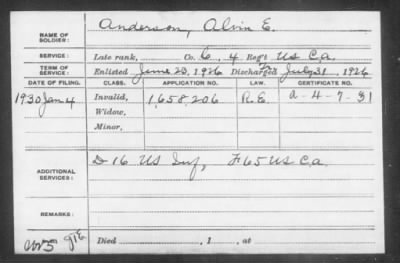 NAME OF SOLDIER: Anderson, Alvin E.
SERVICE: Late rank, Co. 6, 4 Reg't US C.A.
TERM OF SERVICE: Enlisted June 23, 1926 Discharged July 31, 1926
DATE OF FILING. CLASS. APPLICATION NO. LAW. CERTIFICATE NO.
1930 Jan 4 Invalid, 1,658,206 R.E. a-4-7-31
Widow,
Minor,
ADDITIONAL SERVICES: D 16 US Inf, F 65 US C.A.
REMARKS:
Died , 1 , at